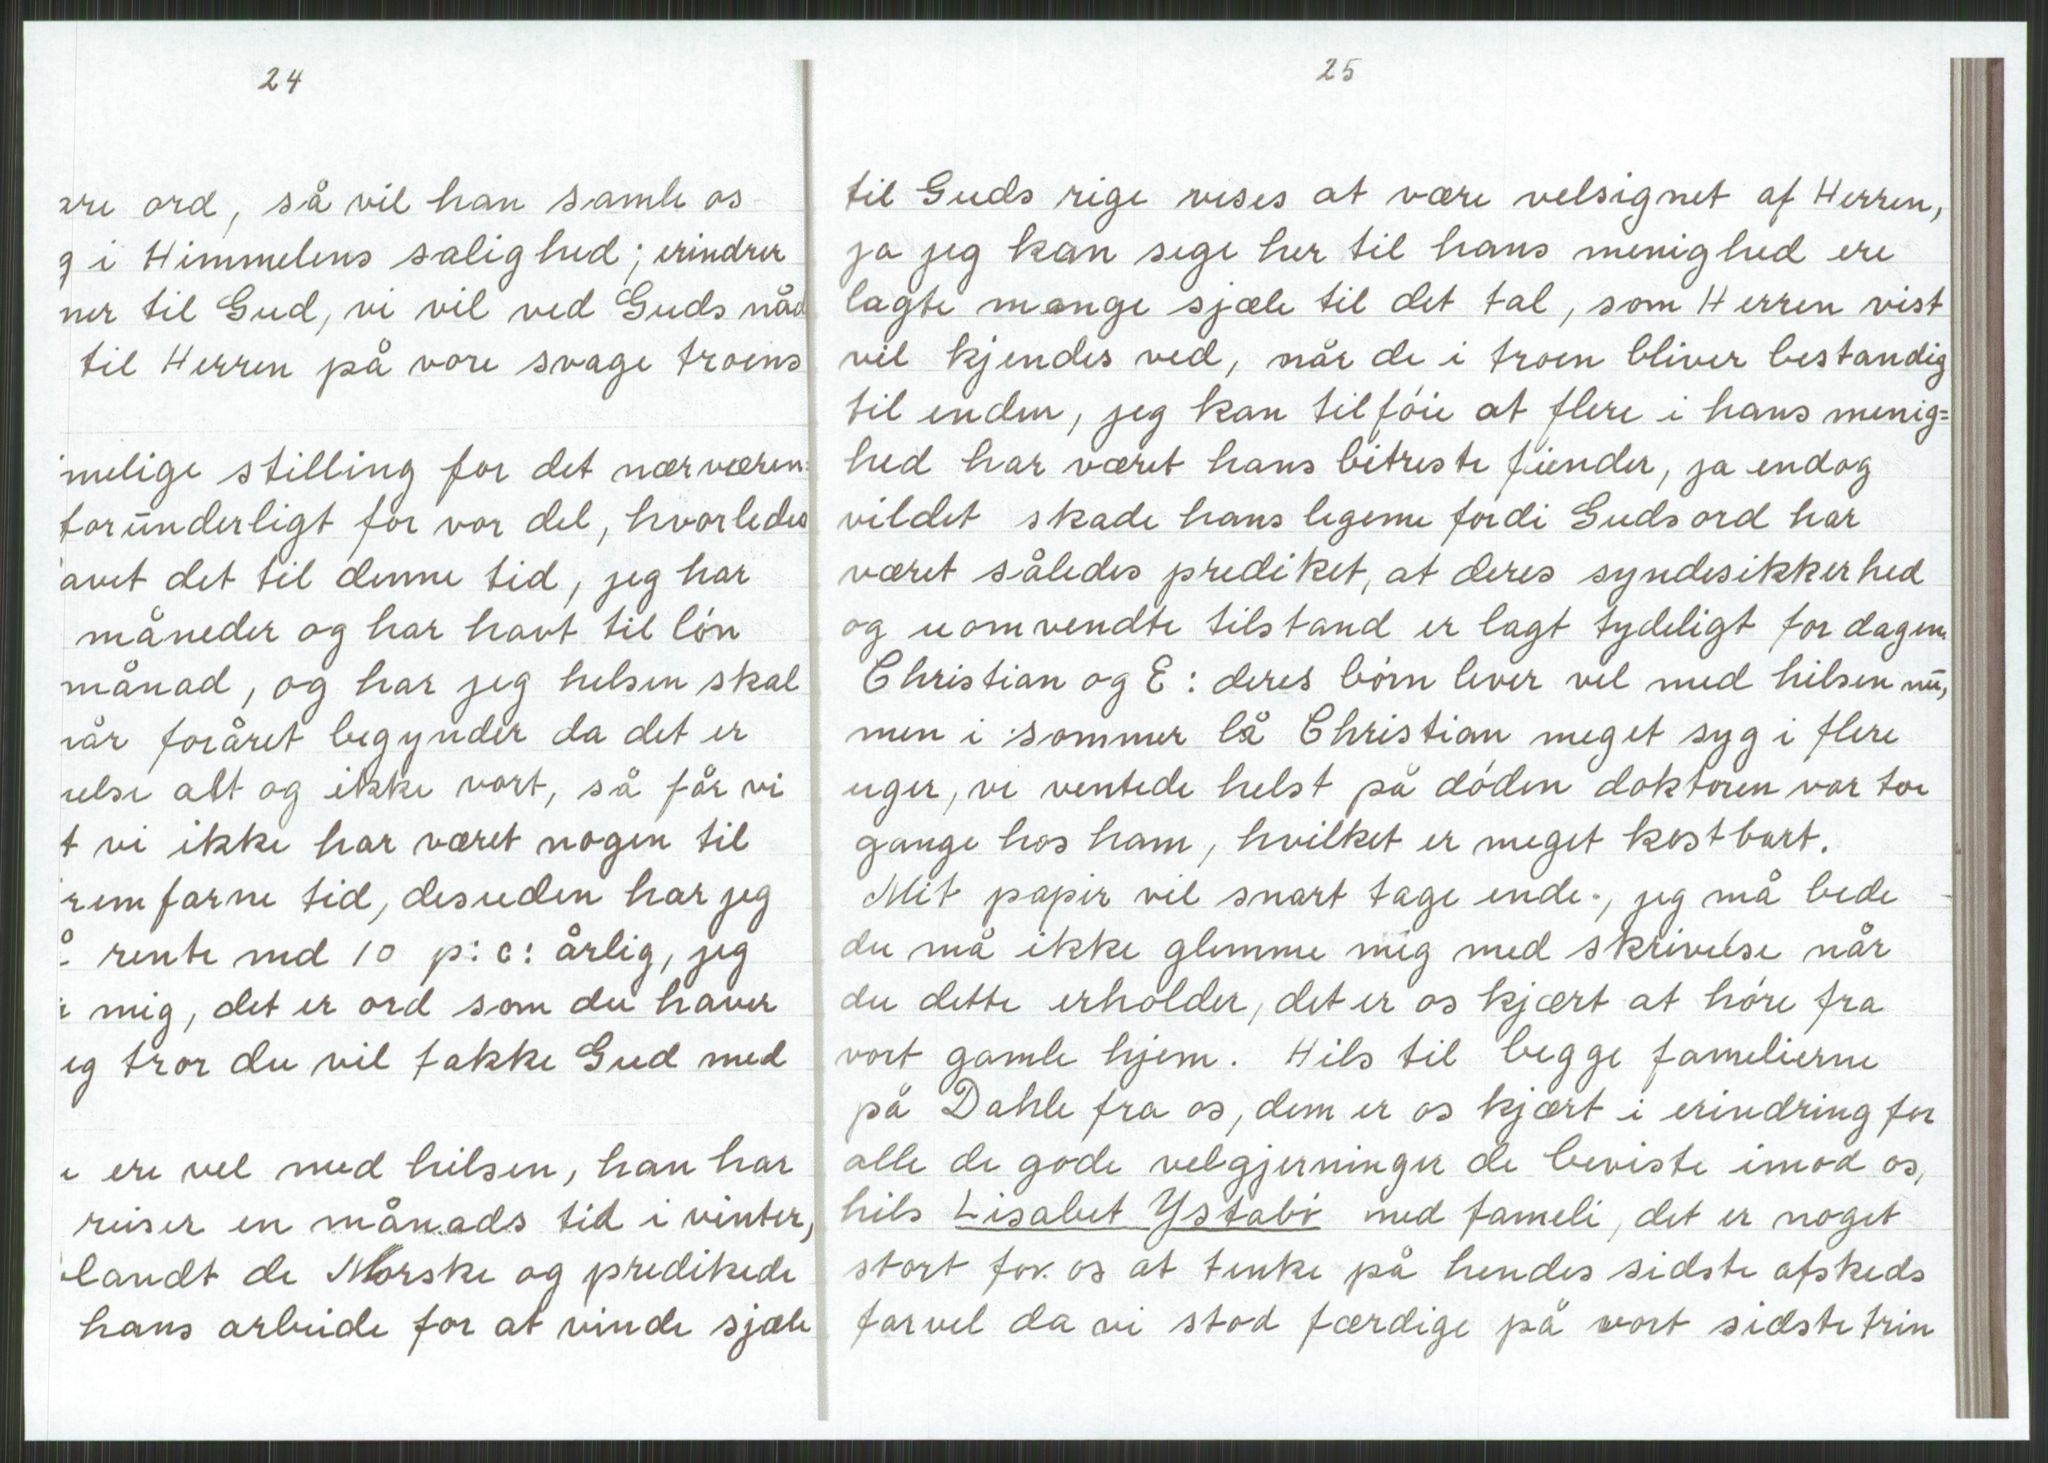 24
ære ord, så vil han samle os
g i Himmelens salighed; erindrer
ner til Gud, vi vil ved Guds nåd
til Herren på vore svage troens
melige stilling for det nærværen=
forunderligt for vor del, hvorledes
avet det til denne tid, jeg har
måneder og har havt til lón
månad, og har jeg helsen skal
når foråret begynder da det er
else alt og ikke vort, så får vi
t vi ikke har været nogen til
remfarne tid, desuden har jeg
rente med 10 p: c: årlig, jeg
mig, det er ord som du haver
eg tror du vil takke Gud med
ere vel med hilsen, han har
reiser en månads tid i vinter,
blandt de Norske og predikede
hans arbeide for at vinde sjæle
25
til Guds rige vises at være velsignet af Herren,
ja jeg kan sege her til hans menighed ere
lagte mange sjæle til det tal, som Herren vist
vil kjendes ved, når de i troen bliver bestandig
til enden, jeg kan tilfóie at flere i hans menig=
hed har været hans bitreste fiender, ja endog
vildet skade hans legeme fordi Guds ord har
været således prediket, at deres syndesikkerhed
og uomvendte tilstand er lagt tydeligt for dagen.
Christian og E: deres bórn lever vel med hilsen nu,
men i sommer lå Christian meget syg i flere
uger, vi ventede helst på dóden doktoren var toe
gange hos ham, hvilket er meget kostbart.
Mit papir vil snart tage ende., jeg må bede
du må ikke glemme mig med skrivelse når
du dette erholder, det er os kjært at hóre fra
vort gamle hjem. Hils til begge famelierne
på Dahle fra os, dem er os kjært i erindring for
alle de gode velgjerninger de beviste imod os,
hils Lisabet Ystabó med fameli, det er noget
stort for os at tenke på hendes sidste afskeds
farvel da vi stod færdige på vort sidste trin